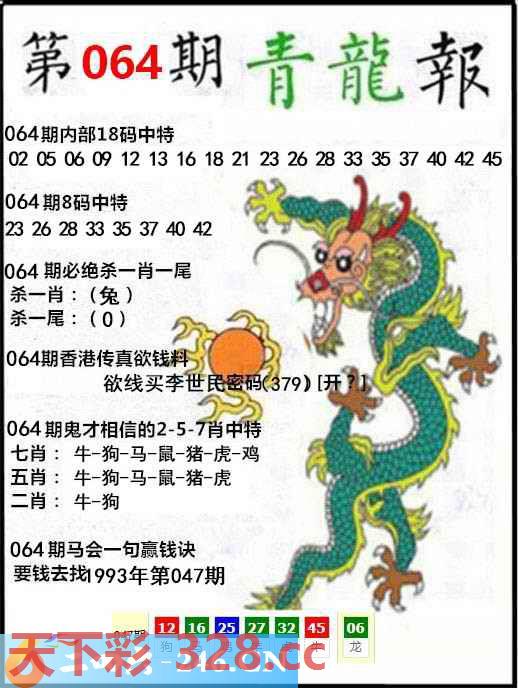 第064期青龍報
064期内部18码中特
02 05 06 09 12 13 16 18 21 23 26 28 33 35 37 40 42 45
064期8码中特
23 26 28 33 35 37 40 42
064期必绝杀一肖一尾
杀一肖：（兔）
杀一尾：（0）
064期香港传真欲钱料
欲线买李世民密码(379)[开?]
064期鬼才相信的2-5-7肖中特
七肖：牛-狗-马-鼠-猪-虎-鸡
五肖：牛-狗-马-鼠-猪-虎
二肖：牛-狗
064期马会一句赢钱诀
要钱去找1993年第047期
12 16 25 27 32 45 06
狗 龙
天下彩-328.cc